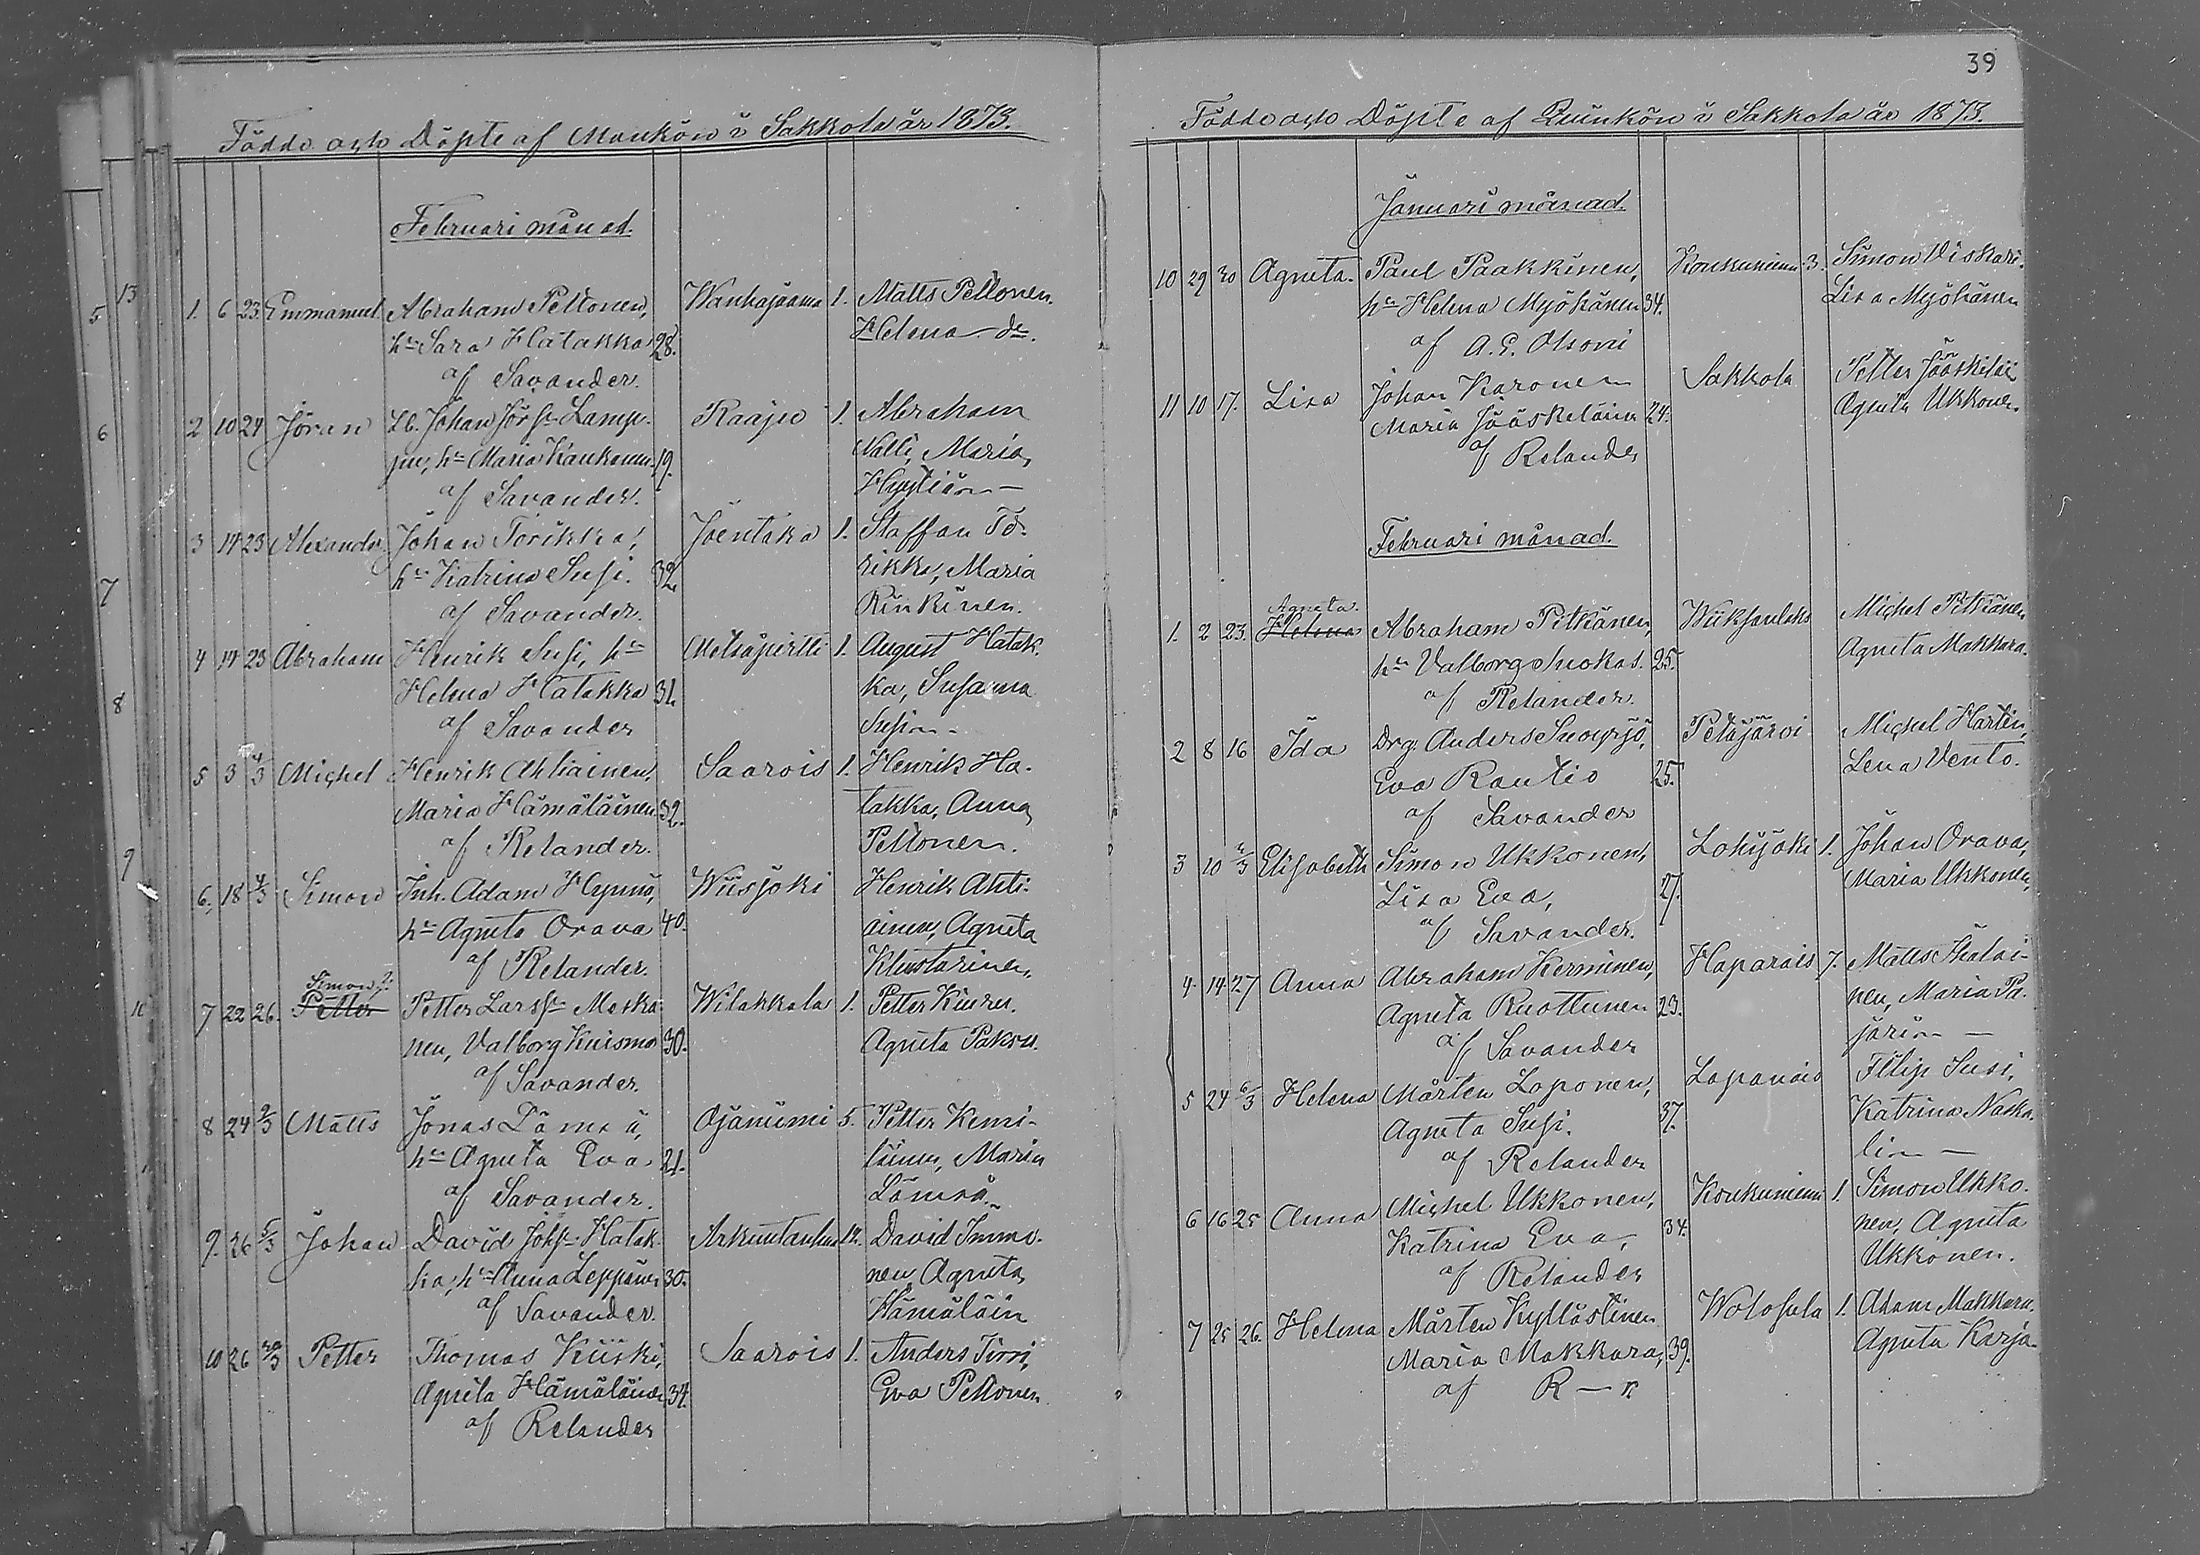 Födde och Döpte af Mankön i Sakkola år 1873.
Februari månad.
1. 6 23. Emmanuel Abraham Peltonen, Wanhajaama 1. Matts Peltonen.
hu Sara Hatakka 28. Helena do.
af Savander.
2 10 24 Jöran Lb. Johan Jörss. Lamp- Raaju 1. Abraham
pu, hu Maria Kaukonen. 19. Nalli, Maria
af Savander. Hyytiän
3 14 23 Alexander Johan Torikka, Joentaka 1. Staffan To-
hu Katrina Susi. 32. rikka, Maria
af Savander. Rinkinen.
4 14 23 Abraham Henrik Susi, hu Metsäpirtti 1. August Hatak-
Helena Hatakka 31. ka, Susanna
af Savander Susi
5 3 4/3 Michel Henrik Ahtiainen, Saarois 1. Henrik Ha-
Maria Hämäläinen 32. takka, Anna
af Relander. Peltonen.
6. 18 4/3 Simon Inh. Adam Hynnä, Wiisjoki Henrik Ahti-
hu Agneta Orava 40. ainen, Agneta
af Relander.
Simon
7 22 26. Petter Petter Larss. Moska- Wilakkala 1. Petter Kiuru.
nen, Valborg Kuisma 30. Agneta Paksu.
af Savander.
8 24 2/3 Matts Jonas Lämsä, Ojaniemi 5. Petter Kemi-
hu Agneta Eva. 21. läinen, Maria
af Savander. Lämsä
9. 26 5/3 Johan David Johss. Hatak- Arkuntanhua 12. David Immo-
ka, hu Anna Leppänen 30. nen, Agneta
af Savander. Hämäläin
10 26 Petter Thomas Kiiski, Saarois 1. Anders Tirri,
Agneta Hämäläinen 34. Eva Peltonen
af Relander
13
5
6
7
8
9
39
Födde och Döpte af Quinkön i Sakkola år 1873.
Januari månad.
10 29 30 Agneta. Paul Paakkinen, Koukuniemi 3. Simon Viskari.
hu Helena Myöhänen 34. Lisa Myöhänen
af A. G. Olsoni
11 10 17. Lisa Johan Karonen Sakkola Petter Jääskeläi
Maria Jääskeläinen 24. Agneta Ukkonen.
af Relander
Februari månad.
Agneta.
1. 2 23. Helena Abraham Pitkänen, Wiiksanlaks Michel Pitkänen
hu Valborg Suokas. 25. Agneta Makkara.
af Relander.
2 8 16 Ida Drg. Anders Suonpjö, Petäjärvi Michel Hartin,
Eva Rautio 25. Lena Vento.
af Savander
3 10 Elisabeth Simon Ukkonen, Lohijoki 1. Johan Orava,
Lisa Eva, 27. Maria Ukkonen,
af Savander.
4 14 27 Anna Abraham Kerminen, Haparais 7. Matts
Agneta Ruottinen 23. nen, Maria Pa-
af Savander jarin
5 24 6/3 Helena Mårten Laponen, Lapanais Filip Susi,
Agneta Susi. 37. Katrina Naska-
af Relander lin
6 16 25 Anna Michel Ukkonen, Koukuniemi 1. Simon Ukko-
Katrina Eva, 34. nen, Agneta
af Relander Ukkonen.
7 25 26. Helena Mårten Kyllästinen Wolosula 1. Adam Makkara.
Maria Makkara, 39. Agneta Karja
af R—r.